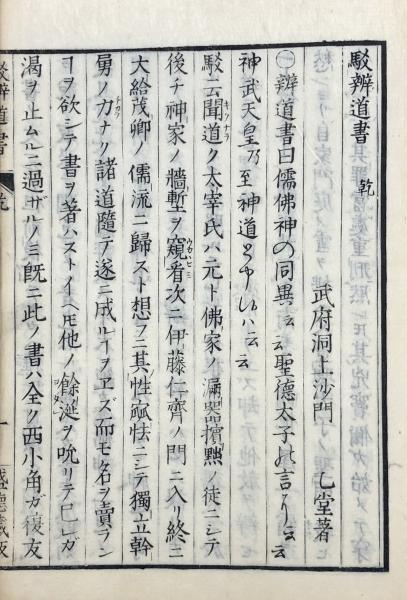 駁辨道書 乾
武府洞上沙門 乙堂著
㊀辨道書曰儒佛神の同異云云聖德太子の言り云云
神武天皇乃至神道とや候ハ云云
駁云聞道ク太宰氏ハ元ト佛家ノ漏器擯黜ノ徒ニシテ
後チ神家ノ牆塹ヲ窺看次ニ伊藤仁齊ノ門ニ入リ終ニ
大給茂卿ノ儒流ニ歸スト想フニ其性孤怯ニシテ獨立幹
勇ノ力ナリ諸道隨テ遂ニ成ルヿヲヱズ而モ名ヲ賣ラン
ヿヲ欲シテ書ヲ著ハストイヘ𪜈他ノ餘涎ヲ吮リテ已ガ
渴ヲ止ムルニ過ザルノミ既ニ此ノ書ハ全ク西小角ガ複友
駁辨道書 乾 一